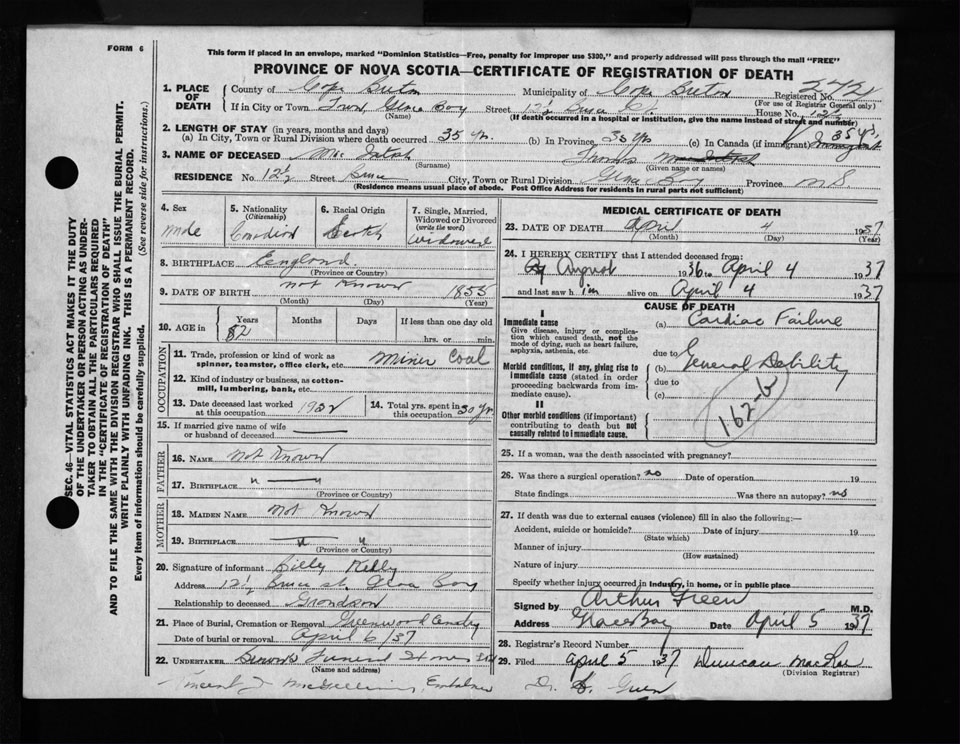 FORM 6
This form if placed in an envelope, marked "Dominion Statistics—Free, penalty for improper use $300," and properly addressed will pass through the mail "FREE"
PROVINCE OF NOVA SCOTIA—CERTIFICATE OF REGISTRATION OF DEATH
SEC. 46—VITAL STATISTICS ACT MAKES IT THE DUTY
OF THE UNDERTAKER OR PERSON ACTING AS UNDER-
TAKER TO OBTAIN ALL THE PARTICULARS REQUIRED
IN THE "CERTIFICATE OF REGISTRATION OF DEATH"
AND TO FILE THE SAME WITH THE DIVISION REGISTRAR WHO SHALL ISSUE THE BURIAL PERMIT.
WRITE PLAINLY WITH UNFADING INK. THIS IS A PERMANENT RECORD.
Every item of information should be carefully supplied. (See reverse side for instructions.)
1. PLACE OF DEATH County of Cape Breton Municipality of Cape Breton Registered No. 272
(For use of Registrar General only)
If in City or Town Town, Glace Bay Street 12½ Bruce St. House No. 12½
(Name) (If death occurred in a hospital or institution, give the name instead of street and number)
2. LENGTH OF STAY (in years, months and days)
(a) In City, Town or Rural Division where death occurred 35 yr. (b) In Province 35 Yrs (c) In Canada (if immigrant) 35 yrs.
3. NAME OF DECEASED Mc Intosh Thomas
(Surname) (Given name or names)
RESIDENCE No. 12½ Street Bruce City, Town or Rural Division Glace Bay Province N.S.
(Residence means usual place of abode. Post Office Address for residents in rural parts not sufficient)
4. Sex Male
5. Nationality (Citizenship) Canadian
6. Racial Origin Scotch
7. Single, Married, Widowed or Divorced (write the word) Widowed
8. BIRTHPLACE England
(Province or Country)
9. DATE OF BIRTH not Known 1855
(Month) (Day) (Year)
10. AGE in Years Months Days If less than one day old
82 hrs. or min.
OCCUPATION
11. Trade, profession or kind of work as spinner, teamster, office clerk, etc. miner Coal
12. Kind of industry or business, as cotton-mill, lumbering, bank, etc.
13. Date deceased last worked at this occupation 1922 14. Total yrs. spent in this occupation 30 yr
15. If married give name of wife or husband of deceased
FATHER
16. NAME not Known
17. BIRTHPLACE " — "
(Province or Country)
MOTHER
18. MAIDEN NAME not Known
19. BIRTHPLACE " "
(Province or Country)
20. Signature of informant Billy Kelly
Address 12½ Bruce st. Glace Bay
Relationship to deceased Grandson
21. Place of Burial, Cremation or Removal Greenwood
Date of burial or removal April 6/37
22. UNDERTAKER Funeral Home Ltd
(Name and address)
Embalmer
MEDICAL CERTIFICATE OF DEATH
23. DATE OF DEATH April 4 1937
(Month) (Day) (Year)
24. I HEREBY CERTIFY that I attended deceased from:
August 1936 to April 4 1937
and last saw him alive on April 4 1937
CAUSE OF DEATH
I
Immediate cause
Give disease, injury or complication which caused death, not the mode of dying, such as heart failure, asphyxia, asthenia, etc.
(a) Cardiac Failure
due to
Morbid conditions, if any, giving rise to immediate cause (stated in order proceeding backwards from immediate cause).
(b) General Debility
due to
(c)
162-b
II
Other morbid conditions (if important) contributing to death but not causally related to immediate cause.
25. If a woman, was the death associated with pregnancy?
26. Was there a surgical operation? no Date of operation 19
State findings Was there an autopsy? no
27. If death was due to external causes (violence) fill in also the following:—
Accident, suicide or homicide? Date of injury 19
(State which)
Manner of injury
(How sustained)
Nature of injury
Specify whether injury occurred in industry, in home, or in public place
Signed by Arthur Green M.D.
Address Glace Bay Date April 5 1937
28. Registrar's Record Number
29. Filed April 5 1937 Duncan MacRae
(Division Registrar)
Dr. Green